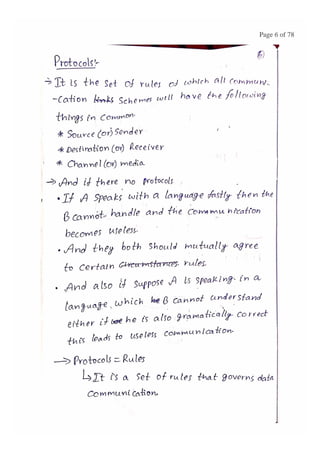 Page 6 of 78
Protocols:-
→ It is the set of rules of which all communi-
-cation links schemes will have the following
things in common
* Source (or) Sender
* Destination (or) Receiver
* Channel (or) media
→ And if there no protocols
• If A speaks with a language fastly then the
B cannot handle and the communication
becomes useless.
• And they both should mutually agree
to certain circumstances rules.
• And also if suppose A is speaking in a
language, which B cannot understand
either if he is also gramatically correct
this leads to useless communication
→ Protocols = Rules
↳ It is a set of rules that governs data
communication